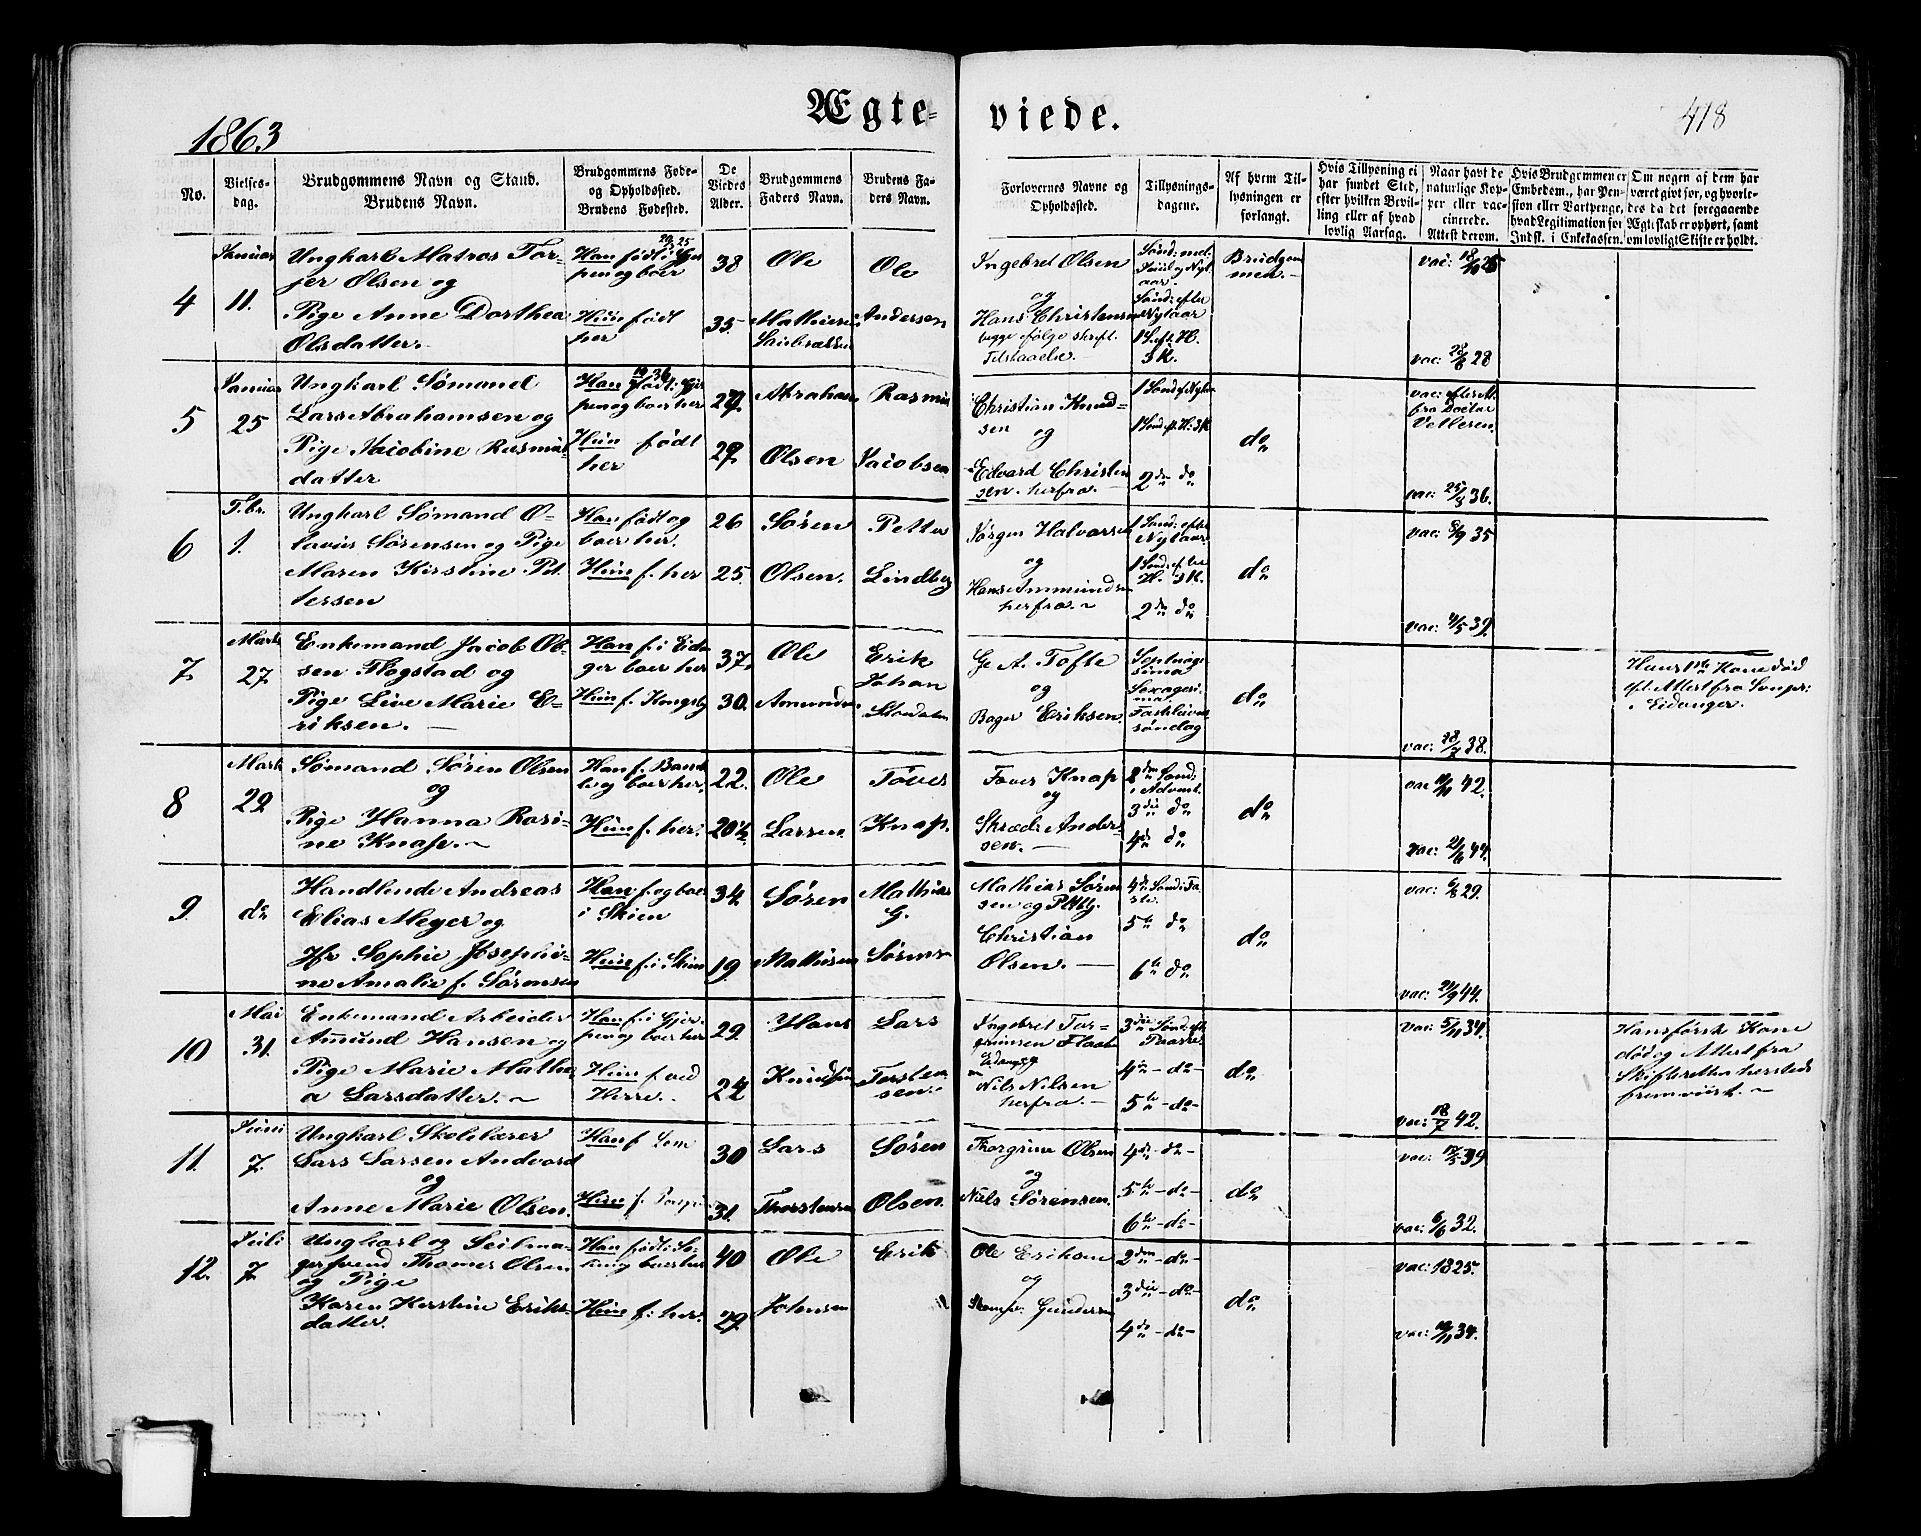 Ægte-
viede.
1863
418
No.
Vielses-
dag.
Brudgommens Navn og Stand.
Brudens Navn.
Brudgommens Føde-
og Opholdssted.
Brudens Fødested.
De
Viedes
Alder.
Brudgommens
Faders Navn.
Brudens Fa-
ders Navn.
Forlovernes Navne og
Opholdssted.
Tillysnings-
dagene.
Af hvem Til-
lysningen er
forlangt.
Hvis Tillysning ei
har fundet Sted,
efter hvilken Bevil-
ling eller af hvad
lovlig Aarsag.
Naar havt de
naturlige Kop-
per eller vac-
cinerede.
Attest derom.
Hvis Brudgommen er
Embedsm., har Pen-
sion eller Vartpenge,
hvad Legitimation for
Indsk. i Enkekassen.
Om nogen af dem har
været gift før, og hvorle-
des da det foregaaende
Ægteskab er ophørt, samt
om lovligt Skifte er holdt.
4
Januar
11.
Ungkarl Matros Tor-
jer Olsen og
Pige Anne Dorthea
Olsdatter.
Han født i Gjer
pen og boer
Hun født
her
38
35
Ole
Mathiesen
Ole
Andersen
Ingebret Olsen
og
Hans Christensen
begge følge skrift.
Tilstaaelse.
Sønd: mel.
Juul og Nyt
aar.
Sønd: efter
Nytaar
1 S. eft. H.
3 K.
Brudgom
men.
vac: 18/10 25
vac: 28/6 28
5
Januar
25
Ungkarl Sømand
Lars Abrahamsen og
Pige Jacobine Rasmus
datter
Han født i Gjer
pen og boer her
Hun født
her
27
29
Abraham
Olsen
Rasmus
Jacobsen
Christian Knud-
sen
og
Edvard Christen
sen. herfra.
1 Sønd. ef. Nytaar
1 Sønd. ef. H. 3 K
2den do
do
vac: efter At.
fra Doctor
Vetlesen.
vac: 25/8 36.
6
Febr.
1.
Ungkarl Sømand O-
lavus Sørensen og Pige
Maren Kirstine Pet
tersen
Han født og
boer her.
Hun f. her
26
25.
Søren
Olsen.
Petter
Lindberg
Jørgen Halvorsen
og
Hans Ammundsen
herfra.
1 Sønd: efter
Nytaar
1 Sønd. efter
H. 3 K.
2den do
do
vac: 8/9 35
vac: 4/5 39.
7.
Marts
27.
Enkemand Jacob Ol-
sen Flogstad og
Pige Live Marie E-
riksen.
Han f. i Eidan
ger boer her
Hun f. Kongsbg
37.
30.
Ole
Amundsen
Erik
Johan
G. A. Tofte
og
Bager Eriksen.
Septuage
sima
Sexagesi-
ma
Fastelavns
søndag
do
vac: 28/7 38.
Hans 1ste Kone død
efl. Attest fra Sogpr:
i Eidanger.
8
Marts
29
Sømand Søren Olsen
og
Pige Hanna Rosi-
ne Knap.
Han f. Bamb
le og boer her,
Hun f. her.
22.
20 1/2
Ole
Larsen
Tover
Knap.
Tover Knap
og
Skrædr. Ander-
sen.
2den Sønd:
i Advent.
3die do
4de do
do
vac 11/11 42.
vac: 21/6 44.
9.
do
Handlende Andreas
Elias Meyer og
Jfr Sophie Josephi-
ne Amalie f. Sørensen
Han f. og boer
i Skien
Hun f. i Skien
34
19.
Søren
Mathisen
Mathias
G.
Sørensen
Mathias Søren
sen og
Christian
Olsen.
4de Sønd: i Fa-
ste.
5te do
6te do
do
vac: 6/8 29.
vac: 24/9 44.
10
Mai
31.
Enkemand Arbeider
Amund Hansen og
Pige Marie Math
a Larsdatter.
Han f. i Gjer-
pen og boer her
Hun fød
Herre.
29.
24
Hans
Knudsen
Lars
Torsten
sen.
Ingebret Tor-
grimsen Flaate
Eidanger
og
Nils Nilsen
herfra.
3die Sønd: eft
Paaske.
4de - do -
5te - do -
do
vac: 5/11 34.
vac: 18/7 42.
Hans første Kone
død og Attest fra
Skifteretten herstede
fremviist.
11.
Juni
7.
Ungkarl Skolelærer
Lars Larsen Andvord
og
Anne Marie Olsen.
Han f Lom
Hun f.
30
31.
Lars
Thorstensen
Søren
Olsen.
Thorgrim Olsen
og
Niels Sørensen.
4de - do -
5te - do -
6te - do -
do
vac: 17/5 39
vac: 6/6 32.
12.
Juli
7.
Ungkarl og Seilma-
gersvend Thomas Olsen
og Pige
Karen Kirstine Eriks-
datter.
Han født i
og boer her
Hun f: her.
40
29.
Ole
Johnsen
Erik
"
Ole Eriksen
og
Gundersen
2den - do -
3die - do -
4de - do -
do
vac: 1825.
vac: 19/11 34.